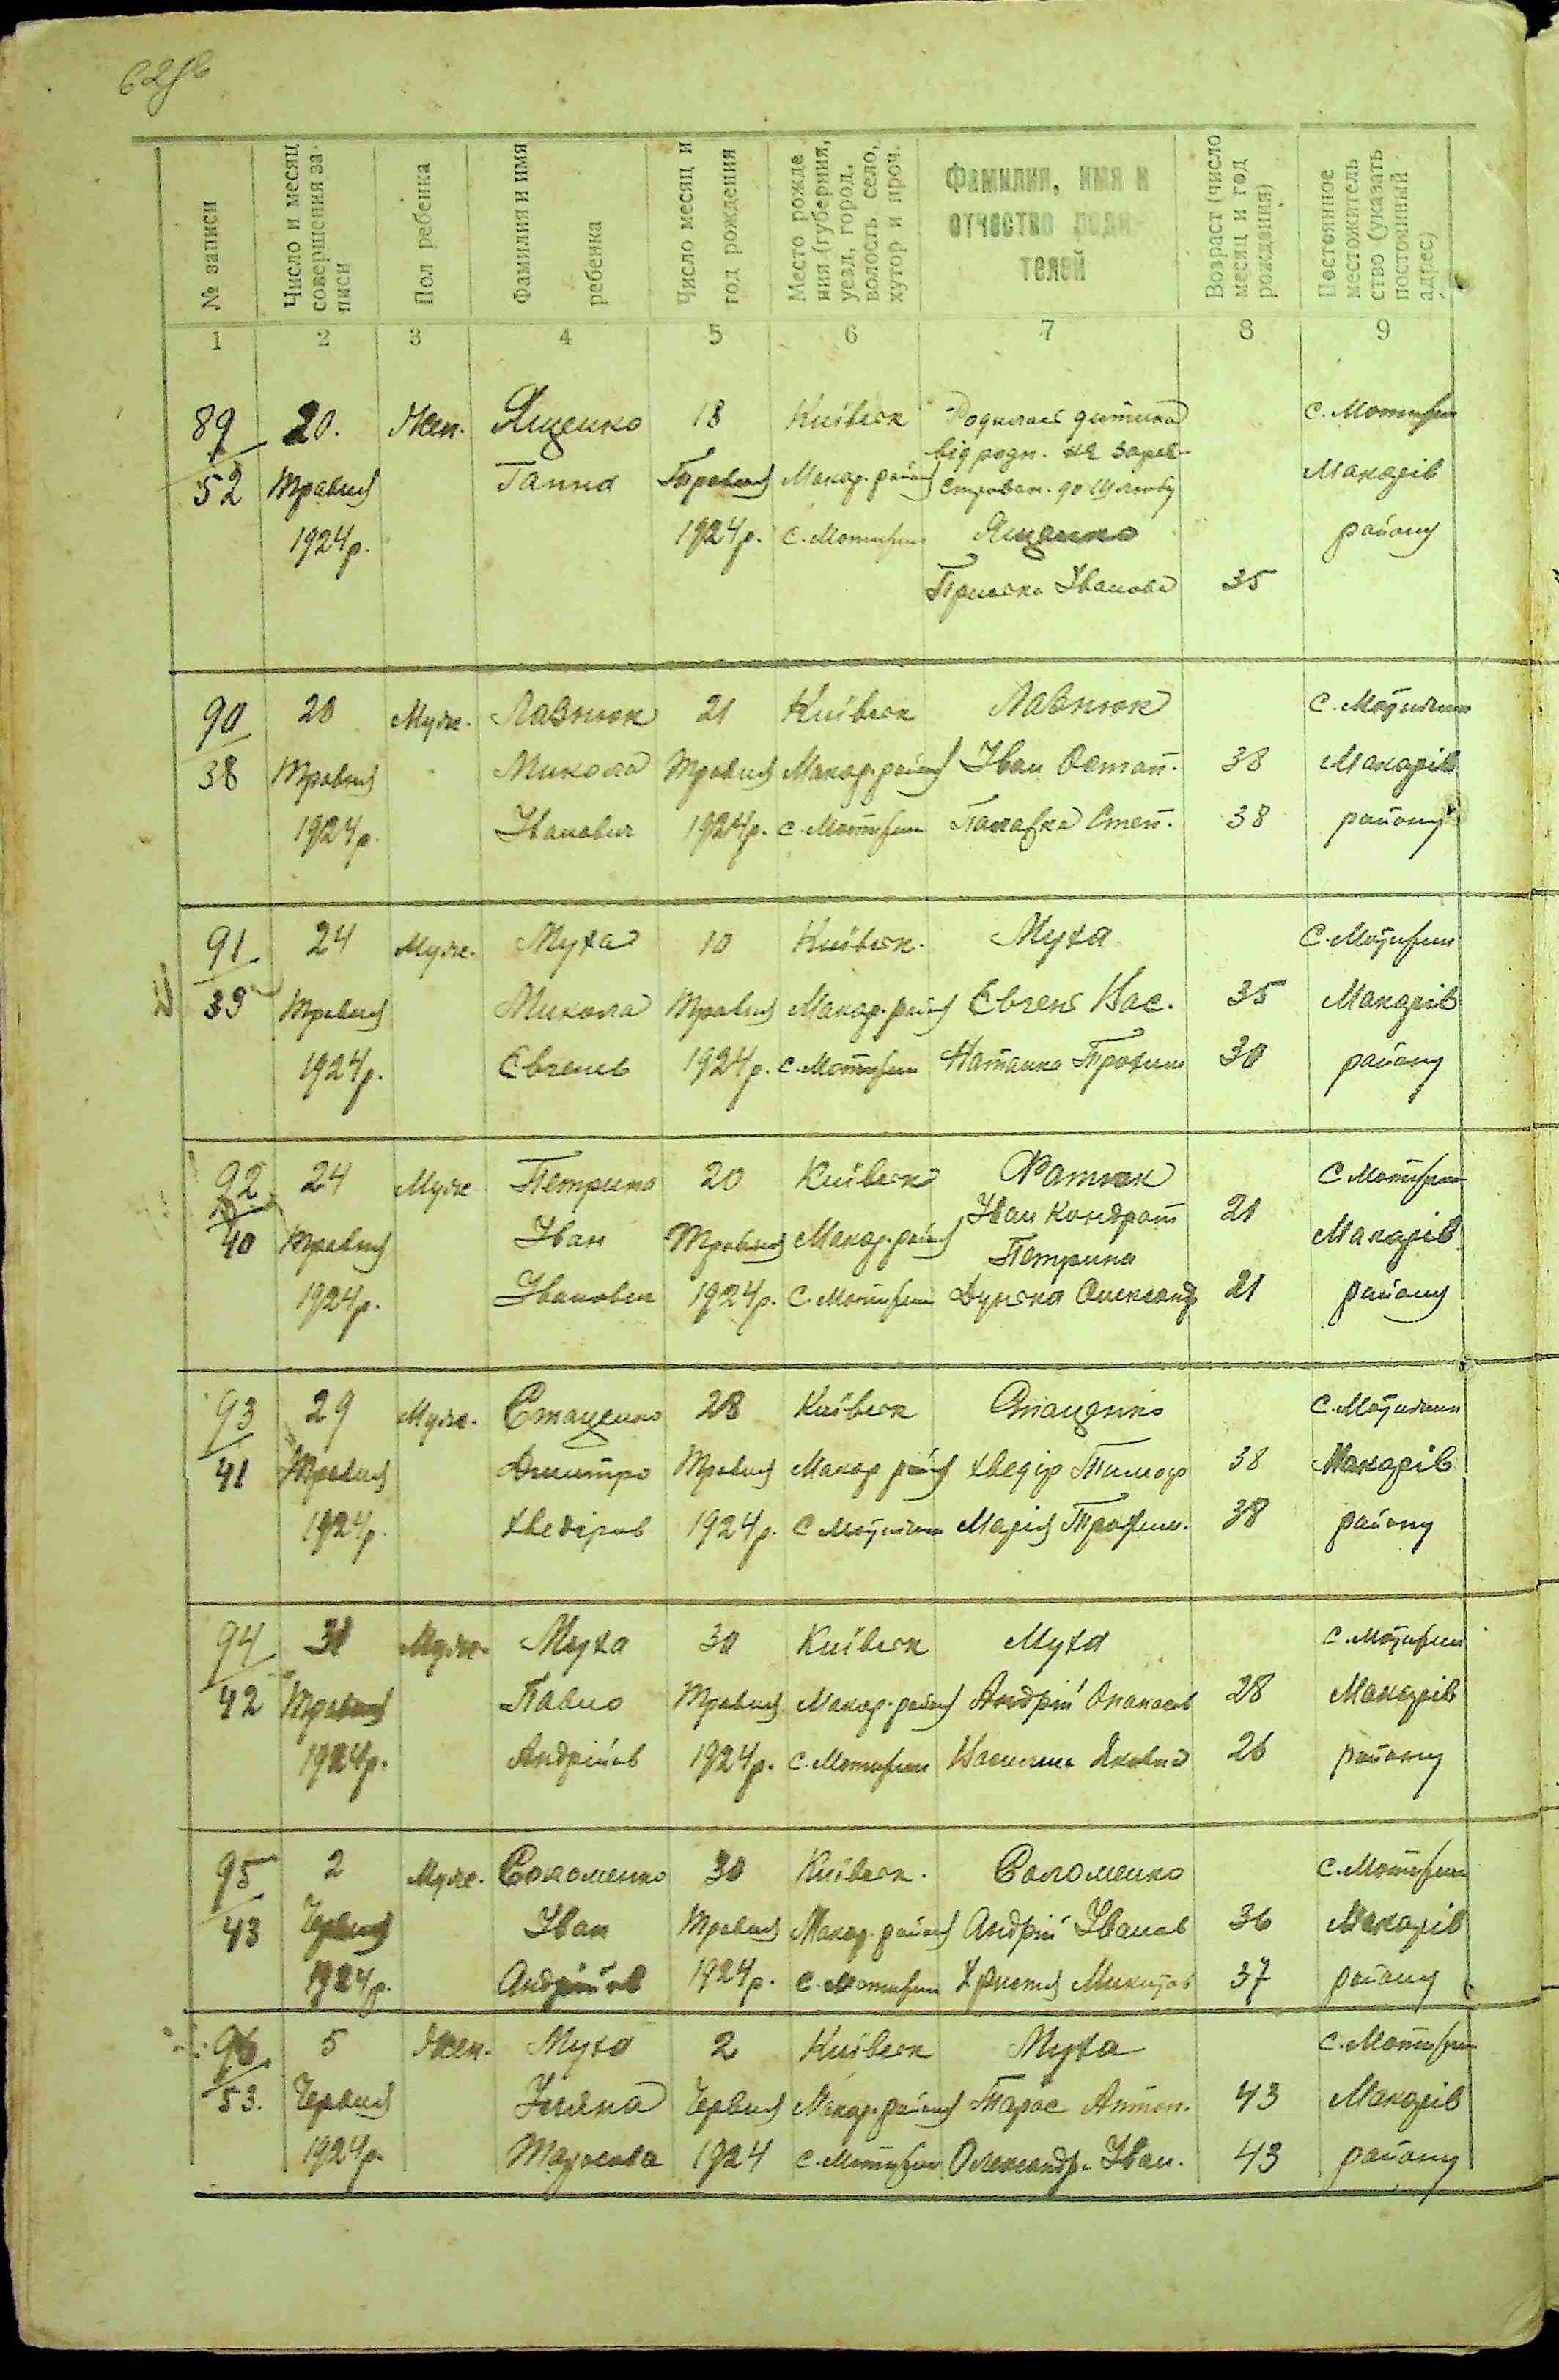 № записи
Число и месяц совершения записи
Пол ребенка
Фамилия и имя ребенка
Число месяц и год рождения
Место рождения (губерния, уезд, город, волость село, хутор и проч.
Фамилия, имя и отчество родителей
Возраст (число месяц и год рождения)
Постоянное местожительство (указать постоянный адрес)
1 2 3 4 5 6 7 8 9
89 20. Жен. Ященко 18 Київськ Родилась дитина с. Мотижин
від родн. не зареє-
52 Травня Ганна Травня Макар. район строван. до шлюбу Макарів
1924р. 1924р. с. Мотижин Ященко району
Приська Іванова 35
90 20 Муж. Лавнюк 21 Київськ Лавнюк с. Мотижин
38 Травня Микола Травня Макар. район Іван Остап. 38 Макарів
1924р. Іванович 1924р. с. Мотижин Палажка Степ. 38 району
91 24 Муж. Муха 10 Київськ. Муха с. Мотижин
39 Травня Микола Травня Макар. район Євген Нас. 35 Макарів
1924р. Євгенів 1924р. с. Мотижин Наталка Трохим 30 району
92 24 Муж Петрина 20 Київськ с Мотижин
Іван Кондрат 21
40 Травня Іван Травня Макар. район Петрина Макарів
1924р. Іванович 1924р. с. Мотижин Дунька Олександ 21 району
93 29 Муж. Стаценко 28 Київськ Стаценко с. Мотижин
41 Травня Дмитро Травня Макар район Хведір Тимоф 38 Макарів
1924р. Хведіров 1924р. с Мотижин Марія Трохим. 38 району
94 31 Муж. Муха 30 Київськ Муха с. Мотижин
42 Травня Павло Травня Макар. район Андрій Опанасів 28 Макарів
1924р. Андріїв 1924р. с. Мотижин Яковна 26 району
95 2 Муж. Соломенко 30 Київськ. Соломенко с. Мотижин
43 Червня Іван Травня Макар. район Андрій Іванов 36 Макарів
1924р. Андріїв 1924р. с. Мотижин Христя Микитов 37 району
96 5 Жен. Муха 2 Київськ Муха с. Мотижин
53. Червня Уляна Червня Макар. район Тарас Антон. 43 Макарів
1924р. Тарасова 1924 с. Мотижин Олександр. Іван. 43 району